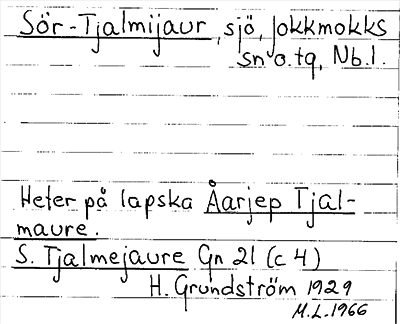 Sör-Tjalmijaur, sjö, Jokkmokks
sn o. tg, Nb. l.
Heter på lapska Åarjep Tjal-
maure.
S. Tjalmejaure Gn 21 (c 4)
H. Grundström 1929
M.L. 1966